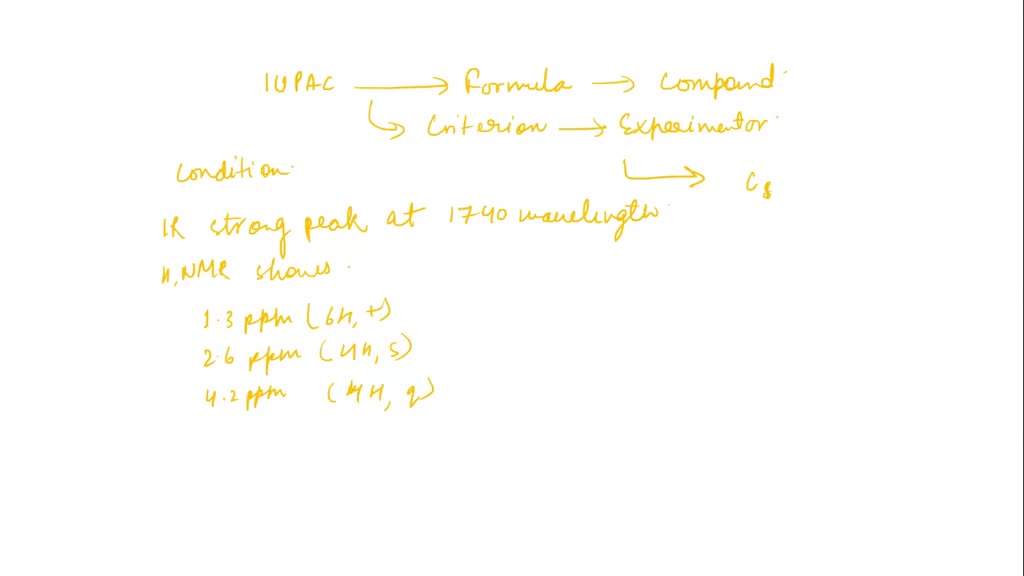 IUPAC → Formula → Compound.
↳ Criterion → Experimentor.
Condition.
↳ C8
IR strong peak at 1740 wavelength.
H, NMR shows.
1.3 ppm (6H, t)
2.6 ppm (4H, s)
4.2 ppm (4H, q)